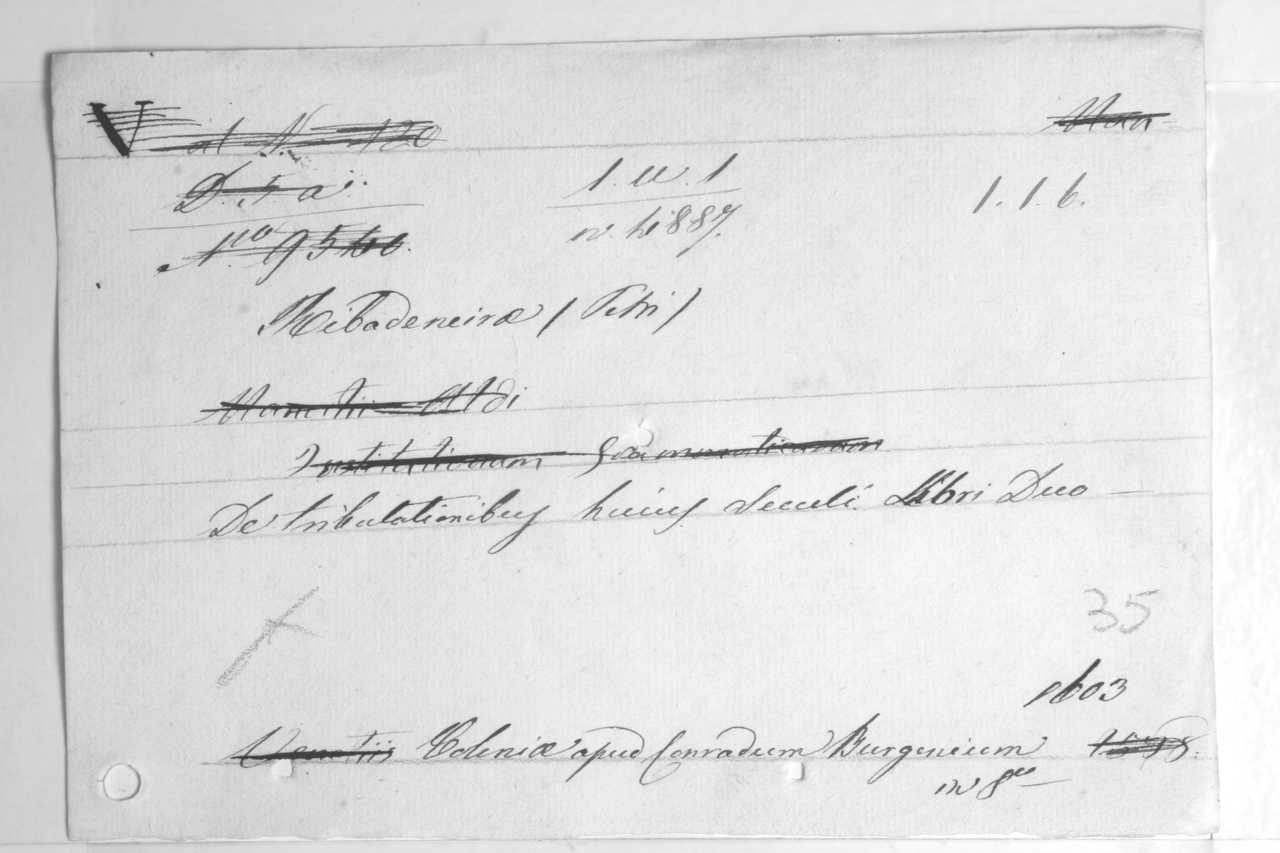 V al N. 120
D. 5 a
1. u. 1
1. 1. 6.
N.ro 9540.
Ribadeneiræ (Petri)
Manutii Aldi
Institutionum Grammaticarum
De tribulationibus huius seculi Libri Duo —
35
1603
Venetiis Coloniæ apud Conradum Burgenium
in 8vo —